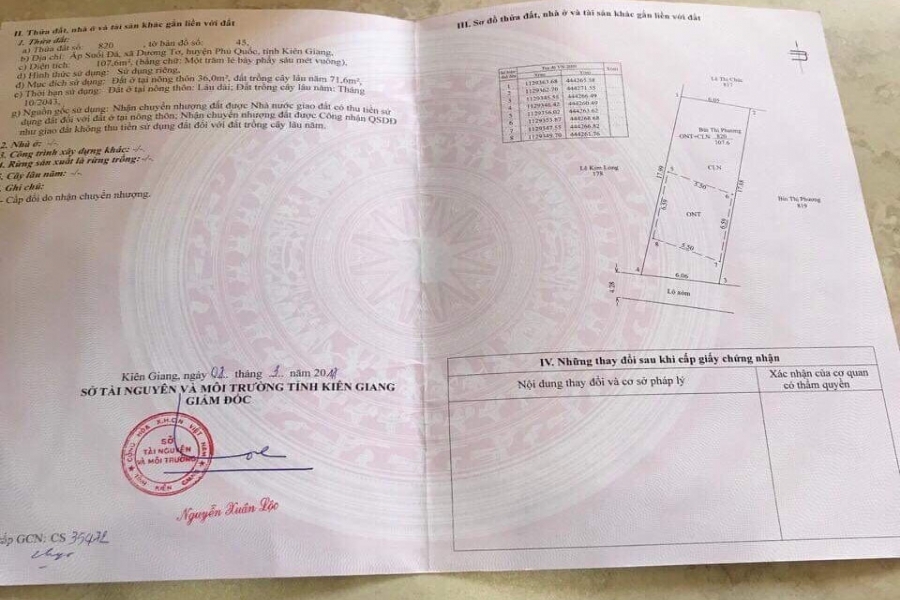 II. Thửa đất, nhà ở và tài sản khác gắn liền với đất
1. Thửa đất:
a) Thửa đất số: 820 , tờ bản đồ số: 45,
b) Địa chỉ: Ấp Suối Đá, xã Dương Tơ, huyện Phú Quốc, tỉnh Kiên Giang,
c) Diện tích: 107,6m², (bằng chữ: Một trăm lẻ bảy phẩy sáu mét vuông),
d) Hình thức sử dụng: Sử dụng riêng,
đ) Mục đích sử dụng: Đất ở tại nông thôn 36,0m², đất trồng cây lâu năm 71,6m².
e) Thời hạn sử dụng: Đất ở tại nông thôn: Lâu dài; Đất trồng cây lâu năm: Tháng
10/2043,
g) Nguồn gốc sử dụng: Nhận chuyển nhượng đất được Nhà nước giao đất có thu tiền sử
dụng đất đối với đất ở tại nông thôn; Nhận chuyển nhượng đất được Công nhận QSDĐ
như giao đất không thu tiền sử dụng đất đối với đất trồng cây lâu năm.
2. Nhà ở: -/-.
3. Công trình xây dựng khác: -/-.
4. Rừng sản xuất là rừng trồng: -/-.
5. Cây lâu năm: -/-.
6. Ghi chú:
- Cấp đổi do nhận chuyển nhượng.
Kiên Giang, ngày 02 tháng 1 năm 2018
SỞ TÀI NGUYÊN VÀ MÔI TRƯỜNG TỈNH KIÊN GIANG
GIÁM ĐỐC
CỘNG HÒA X.H.C.N VIỆT NAM
SỞ
TÀI NGUYÊN
VÀ MÔI TRƯỜNG
TỈNH KIÊN GIANG
Nguyễn Xuân Lộc
cấp GCN: CS
III. Sơ đồ thửa đất, nhà ở và tài sản khác gắn liền với đất
Lê Thị Chút
817
1
6.05
2
Bùi Thị Phương
ONT+CLN 820
107.6
CLN
Lê Kim Long
178
17.99
5
5.50
6
17.58
Bùi Thị Phương
819
6.59
ONT
6.59
8
5.50
7
4
6.06
3
4.28
Lộ xóm
IV. Những thay đổi sau khi cấp giấy chứng nhận
Nội dung thay đổi và cơ sở pháp lý
Xác nhận của cơ quan
có thẩm quyền